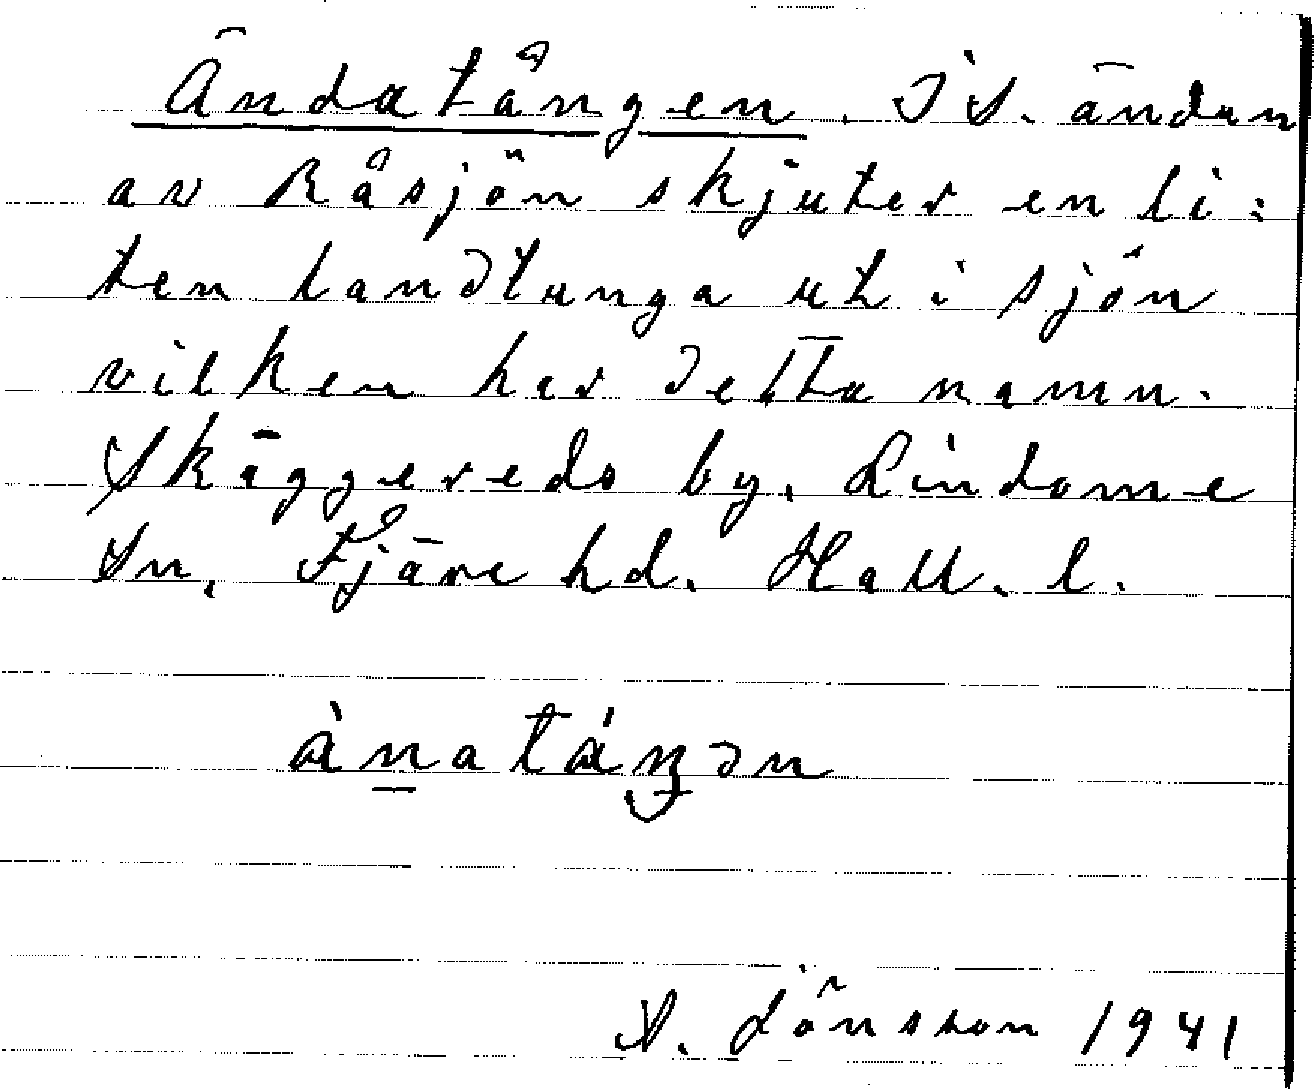 Ändatången. I S. ändan
av Råsjön skjuter en li:
ten landtunga ut i sjön
vilken har detta namn.
Skäggereds by, Lindome
Sn, Fjäre hd. Hall. l.
S. Jönsson 1941